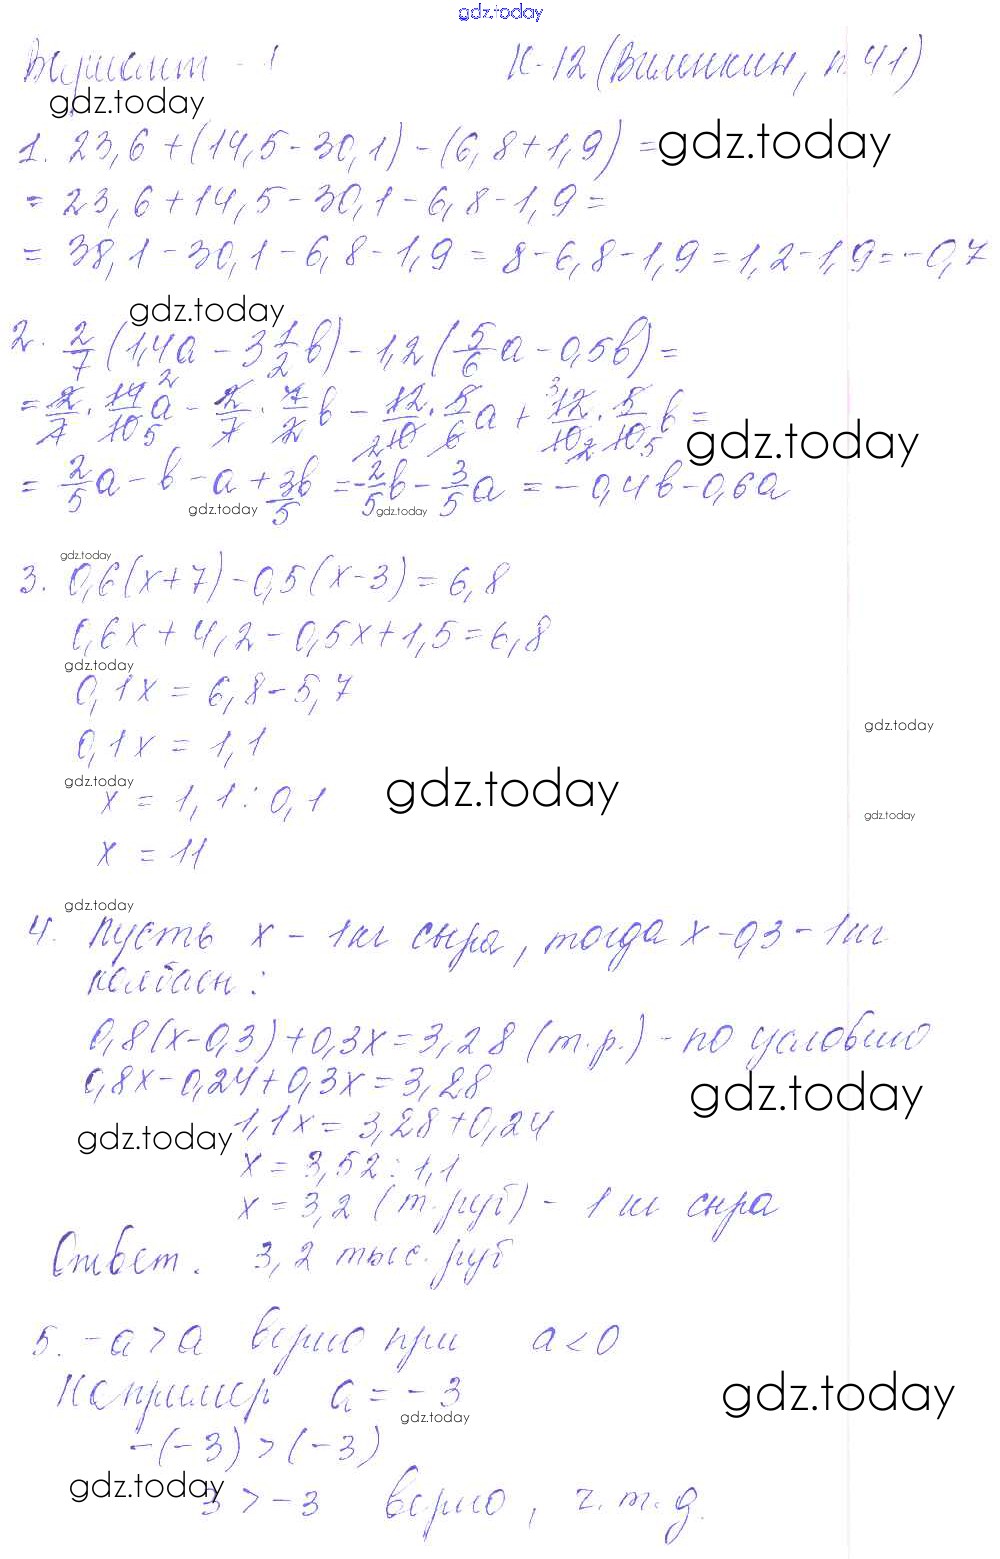 gdz.today
Вариант - 1 К-12 (Виленкин, п. 41)
gdz.today
1. 23,6 + (14,5 - 30,1) - (6,8 + 1,9) = gdz.today
= 23,6 + 14,5 - 30,1 - 6,8 - 1,9 =
= 38,1 - 30,1 - 6,8 - 1,9 = 8 - 6,8 - 1,9 = 1,2 - 1,9 = -0,7
gdz.today
2. 2/7 (1,4a - 3 1/2 b) - 1,2 (5/6 a - 0,5b) =
= 2/7 · 14/10 a - 2/7 · 7/2 b - 12/10 · 5/6 a + 12/10 · 5/10 b =
gdz.today
= 2/5 a - b - a + 3b/5 = -2/5 b - 3/5 a = -0,4b - 0,6a
gdz.today gdz.today
gdz.today
3. 0,6(x + 7) - 0,5(x - 3) = 6,8
0,6x + 4,2 - 0,5x + 1,5 = 6,8
gdz.today
0,1x = 6,8 - 5,7
gdz.today
0,1x = 1,1
gdz.today
x = 1,1 : 0,1
gdz.today
gdz.today
x = 11
gdz.today
4. Пусть x - 1кг сыра, тогда x - 0,3 - 1кг
колбасы:
0,8(x - 0,3) + 0,3x = 3,28 (т.р.) - по условию
0,8x - 0,24 + 0,3x = 3,28
gdz.today
1,1x = 3,28 + 0,24
gdz.today
x = 3,52 : 1,1
x = 3,2 (т.руб) - 1 кг сыра
Ответ. 3,2 тыс. руб
5. -a > a верно при a < 0
Например a = -3
gdz.today
gdz.today
-(-3) > (-3)
gdz.today
3 > -3 верно, ч.т.д.